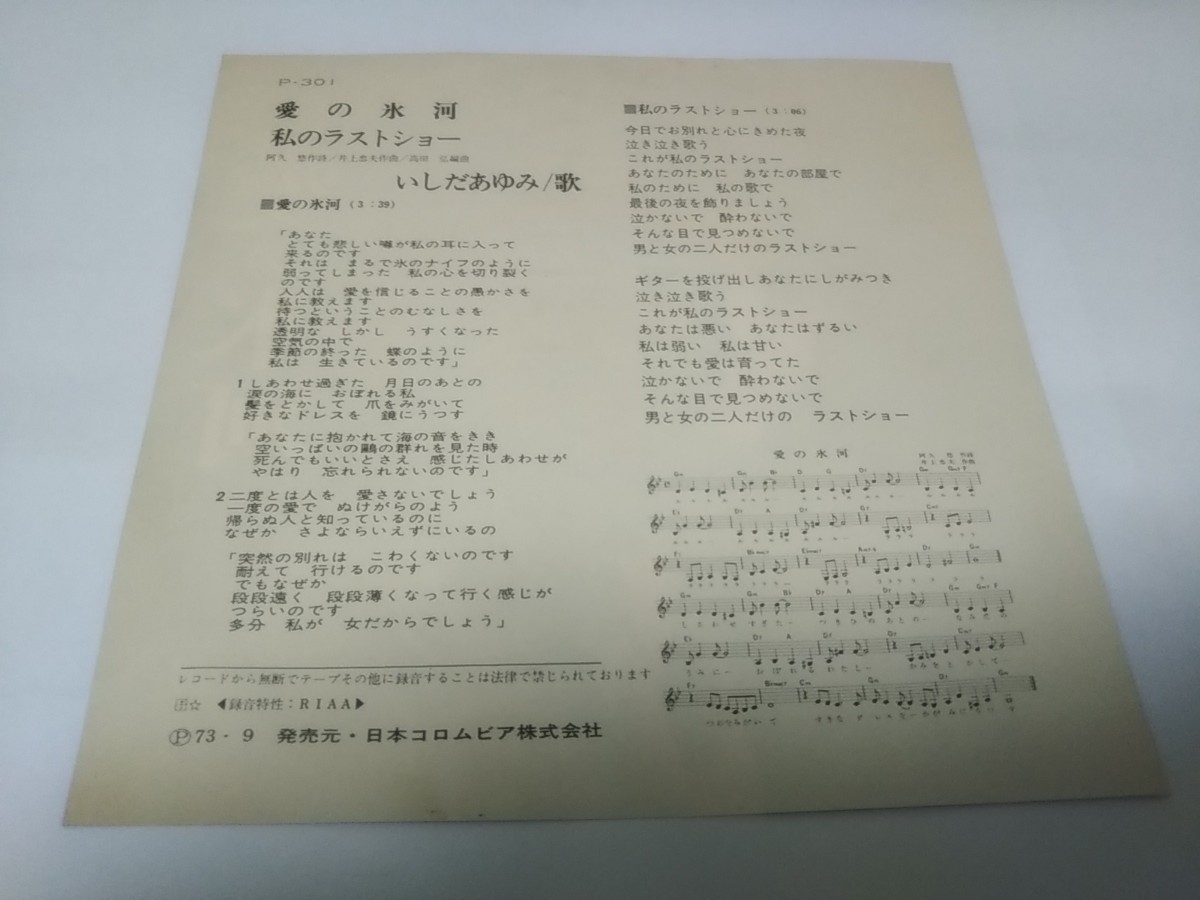 P-301
愛の氷河
私のラストショー
阿久 悠作詩/井上忠夫作曲/高田 弘編曲
いしだあゆみ/歌
■愛の氷河(3:39)
「あなた
とても悲しい囃が私の耳に入って
来るのです
それは まるで氷のナイフのように
弱ってしまった 私の心を切り裂く
のです
人人は 愛を信じることの愚かさを
私に教えます
待つということのむなしさを
私に教えます
透明な しかし うすくなった
空気の中で
季節の終った 蝶のように
私は 生きているのです」
1しあわせ過ぎた 月日のあとの
涙の海に おぼれる私
髪をとかして 爪をみがいて
好きなドレスを 鏡にうつす
「あなたに抱かれて海の音をきき
空いっぱいの鷗の群れを見た時
死んでもいいとさえ 感じたしあわせが
やはり 忘れられないのです」
2二度とは人を 愛さないでしょう
一度の愛で ぬけがらのよう
帰らぬ人と知っているのに
なぜか さよならいえずにいるの
「突然の別れは こわくないのです
耐えて 行けるのです
でもなぜか
段段遠く 段段薄くなって行く感じが
つらいのです
多分 私が 女だからでしょう」
レコードから無断でテープその他に録音することは法律で禁じられております
☆ ◀録音特性:RIAA▶
Ⓟ73・9 発売元・日本コロムビア株式会社
■私のラストショー(3:06)
今日でお別れと心にきめた夜
泣き泣き歌う
これが私のラストショー
あなたのために あなたの部屋で
私のために 私の歌で
最後の夜を飾りましょう
泣かないで 酔わないで
そんな目で見つめないで
男と女の二人だけのラストショー
ギターを投げ出しあなたにしがみつき
泣き泣き歌う
これが私のラストショー
あなたは悪い あなたはずるい
私は弱い 私は甘い
それでも愛は育ってた
泣かないで 酔わないで
そんな目で見つめないで
男と女の二人だけの ラストショー
愛の氷河
阿久 悠 作詞
井上忠夫 作曲
しあわせすぎた— つきひのあとの— なみだの
うみに— おぼれるわたし— かみをとかして—
つめをみがいて すきなドレスを—かがみにうつす